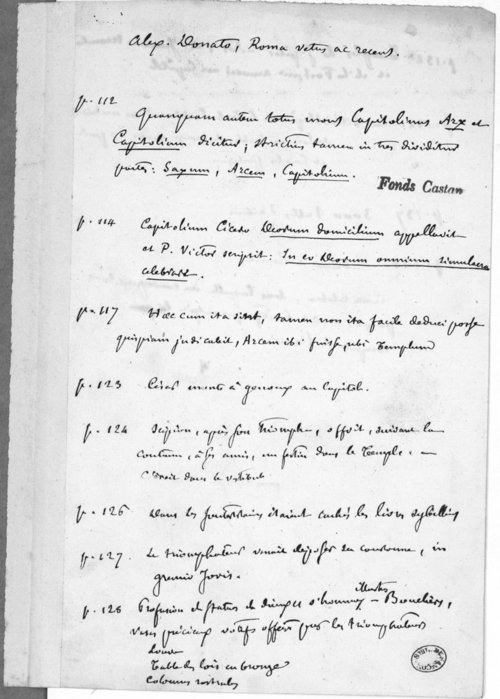 Alex. Donato, Roma vetus ac recens.
p. 112
Quanquam autem totus mons Capitolinus Arx et
Capitolium dicitur, strictius tamen in tres dividitur
partes: Saxum, Arcem, Capitolium.
Fonds Castan
p. 114 Capitolium Cicero Deorum domicilium appellavit
et P. Victor scripsit: In eo Deorum omnium simulacra
celebrari.
p. 117 Hæc cum ita sint, tamen non ita facile deduci posse
quispiam judicabit, Arcem ibi fuisse, ubi Templum
p. 123 César monte à genoux au Capitole.
p. 124 Scipion, après son triomphe, offrit, suivant la
coutume, à ses amis, un festin dans le Temple. —
C'était dans le vestibule
p. 126 Dans les souterrains étaient cachés les livres sybellins
p. 127. Le triomphateur venait déposer sa couronne, in
gremio Jovis.
illustres
p. 128 Profusion de statues de dieux et d'hommes — Boucliers,
vases précieux votifs offerts par les triomphateurs
Louve
Table des lois en bronze
Colonnes rostrales